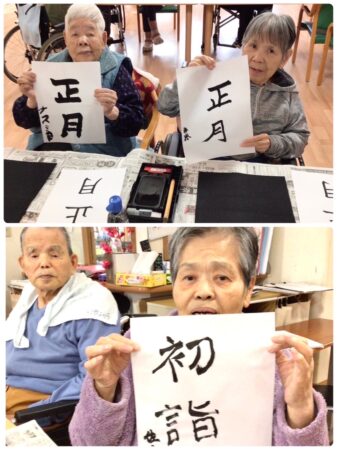 正月
正月
正月
初詣